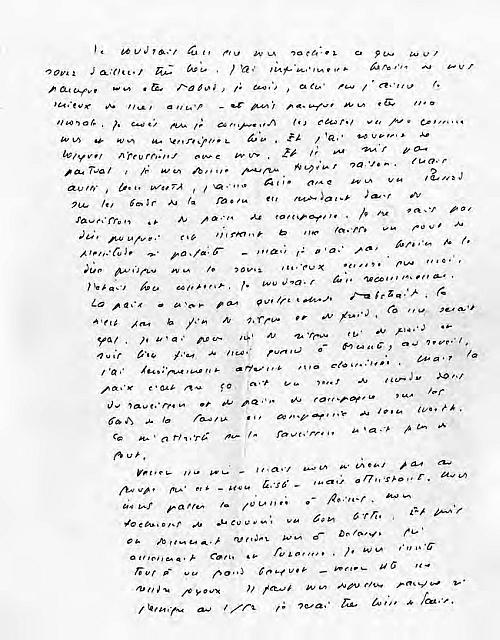 Je voudrais bien que vous sachiez ce que vous
savez d'ailleurs très bien. J'ai infiniment besoin de vous
parce que vous êtes d'abord, je crois, celui que j'aime le
mieux de mes amis - et puis parce que vous êtes ma
morale. Je crois que je comprends les choses un peu comme
vous et vous m'enseignez bien. Et j'ai souvent de
longues discussions avec vous. Et je ne suis pas
partial, je vous donne presque toujours raison. Mais
aussi, Léon Werth, j'aime boire avec vous un Pernod
sur les bords de la Saône en mordant dans du
saucisson et du pain de campagne. Je ne sais pas
dire pourquoi cet instant là me laisse un goût de
plénitude si parfait - mais je n'ai pas besoin de le
dire puisque vous le savez mieux encore que moi.
J'étais bien content, je voudrais bien recommencer.
La paix ce n'est pas quelque chose d'abstrait. Ce
n'est pas la fin du risque et du froid. Ça me serait
égal. Je n'ai peur ni du risque ni du froid et
suis bien fier de moi quand à Orconte, au réveil,
j'ai héroïquement atteint ma cheminée. Mais la
paix c'est que ça ait un sens de mordre dans
du saucisson et du pain de campagne sur les
bords de la Saône en compagnie de Léon Werth.
Ça m'attriste que le saucisson n'ait plus de
goût.
Venez me voir - mais nous n'irons pas au
groupe qui est - non triste - mais attristant. Nous
irons passer la journée à Reims. Nous
tâcherons de découvrir un bon bistro. Et puis
on donnerait rendez vous à Delange qui
amènerait Caro et Suzanne. Je vous invite
tous à un grand banquet - venez vite